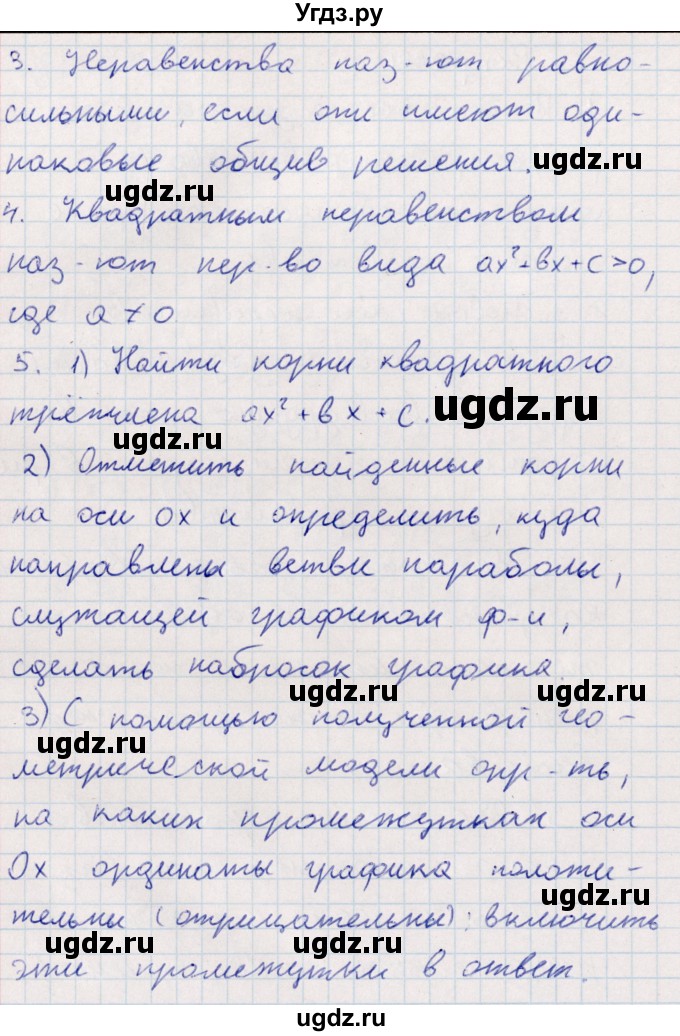 Угдз.ру
3. Неравенства наз-ют равно-
сильными, если они имеют оди-
наковые общие решения.
ugdz.ru
ugdz.ru
4. Квадратным неравенством
наз-ют нер-во вида ax²+bx+c>0,
ugdz.ru
где a≠0
5. 1) Найти корни квадратного
трёхчлена ax²+bx+c.
ugdz.ru
ugdz.ru
2) Отметить найденные корни
на оси Ox и определить, куда
ugdz.ru
направлены ветви параболы,
ugdz.ru
служащей графиком ф-и,
сделать набросок графика.
ugdz.ru
ugdz.ru
3) С помощью полученной гео-
ugdz.ru
метрической модели опр-ть,
на каких промежутках оси
Ox ординаты графика положи-
ugdz.ru
ugdz.ru
тельны (отрицательны); включить
ugdz.ru
ugdz.ru
эти промежутки в ответ.
ugdz.ru